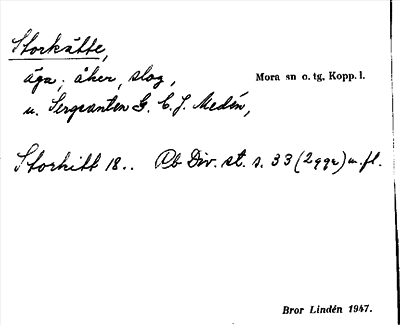 Storkätte,
äga, åker, slog,
Mora sn o. tg, Kopp. l.
u. Sergeanten G. C. J. Medén,
Storkitt 18.. Rb Div. st. s. 33 (2 ggr) m. fl.
Bror Lindén 1947.